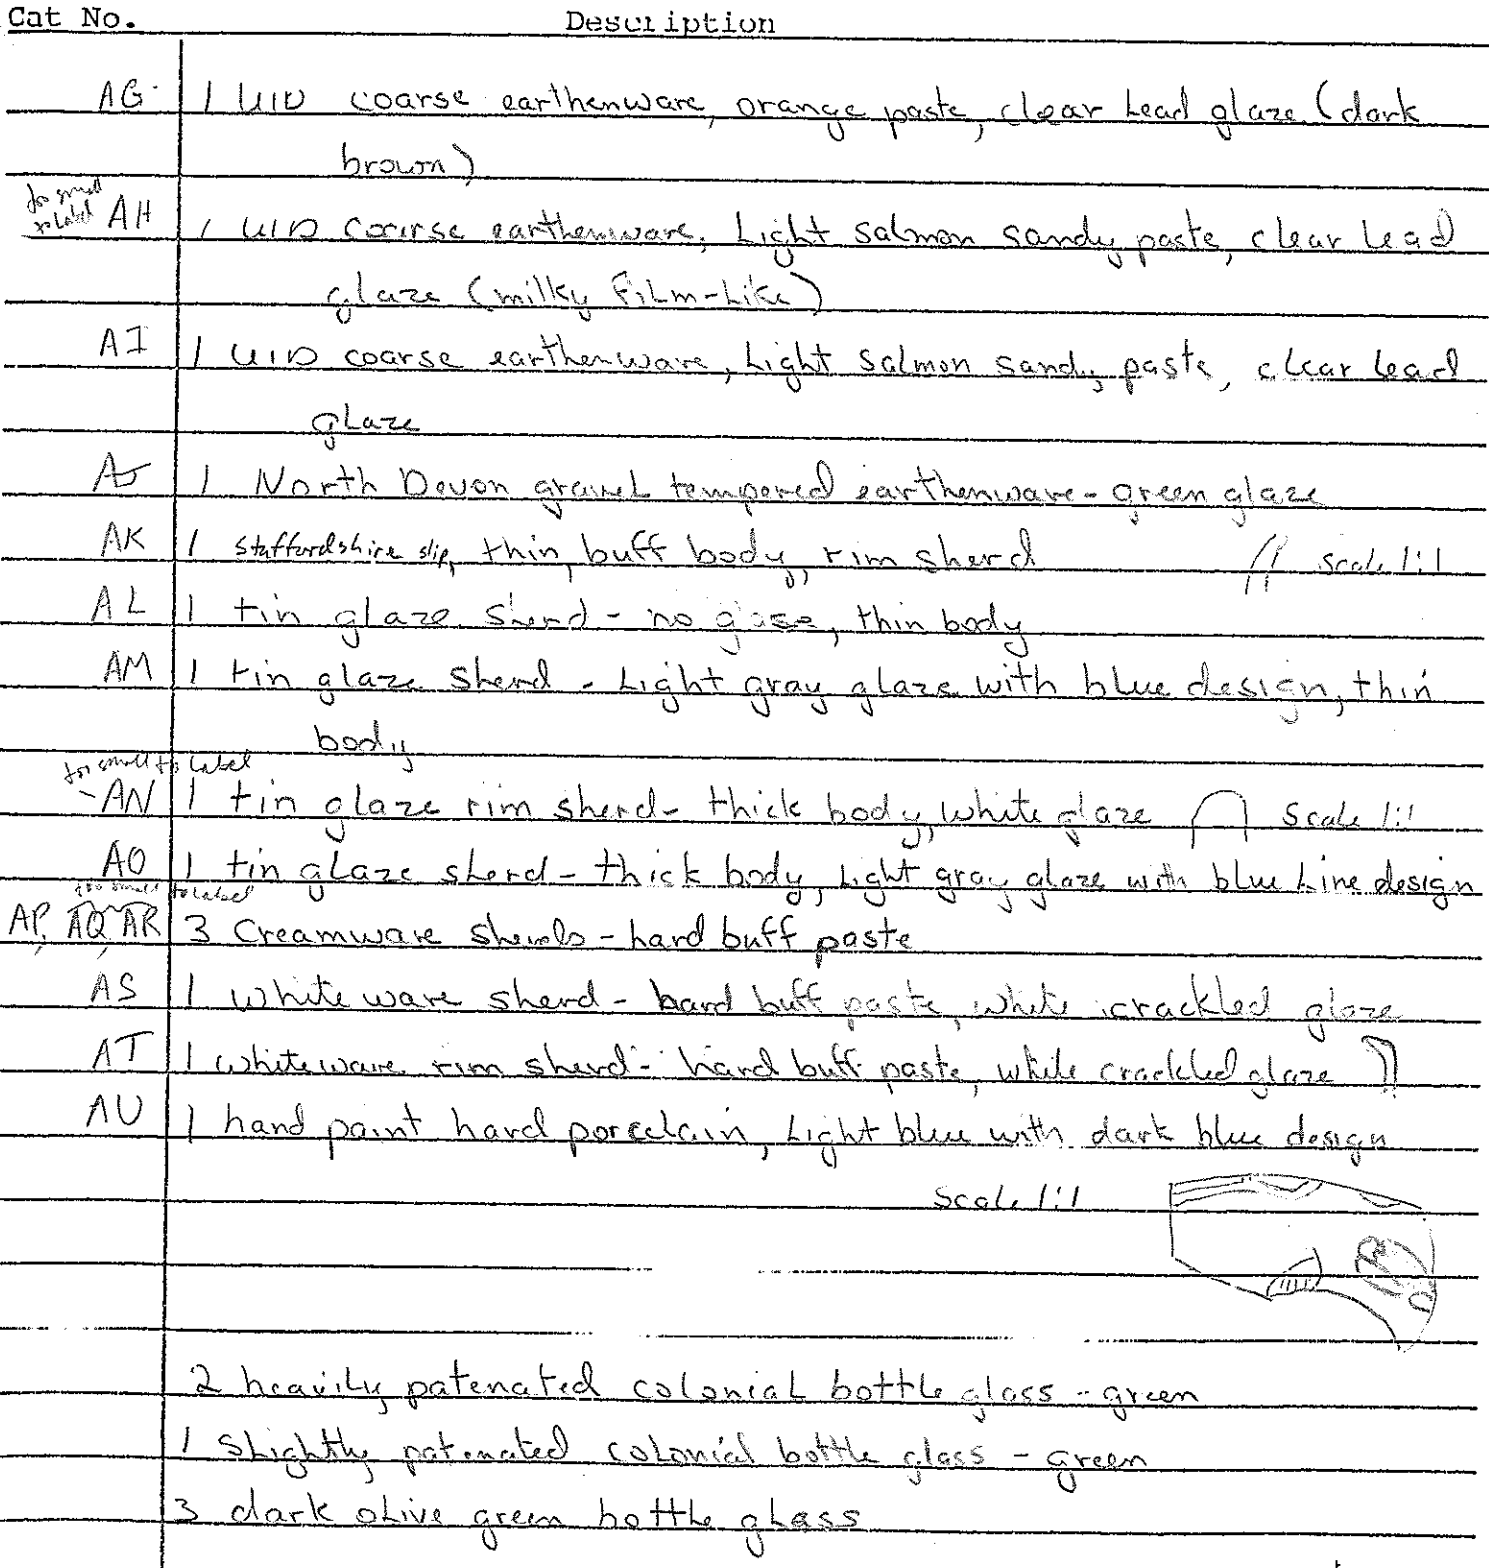 Cat No. Description
AG 1 UID coarse earthenware, orange paste, clear Lead glaze (dark
brown)
too small
to Label
AH 1 UID coarse earthenware, Light salmon sandy paste, clear Lead
glaze (milky FiLm-Like)
AI 1 UID coarse earthenware, Light salmon sandy paste, clear Lead
gLaze
AJ 1 North Devon graveL tempered earthenware - green glaze
AK 1 Staffordshire slip, thin, buff body, rim sherd Scale 1:1
AL 1 tin glaze sherd - no glaze, thin body
AM 1 tin glaze sherd - Light gray glaze with blue design, thin
body
too small to Label
-AN 1 tin glaze rim sherd - thick body, white glaze Scale 1:1
AO 1 tin glaze sherd - thick body, Light gray glaze with blue Line design
too small to label
AP, AQ, AR 3 Creamware sherds - hard buff paste
AS 1 whiteware sherd - hard buff paste, white crackled glaze
AT 1 whiteware rim sherd - hard buff paste, white crackled glaze
AU 1 hand paint hard porcelain, Light blue with dark blue design
Scale 1:1
2 heaviLy patenated coloniaL bottle glass - green
1 SLightly patenated coLonial bottle glass - green
3 dark oLive green bottle gLass